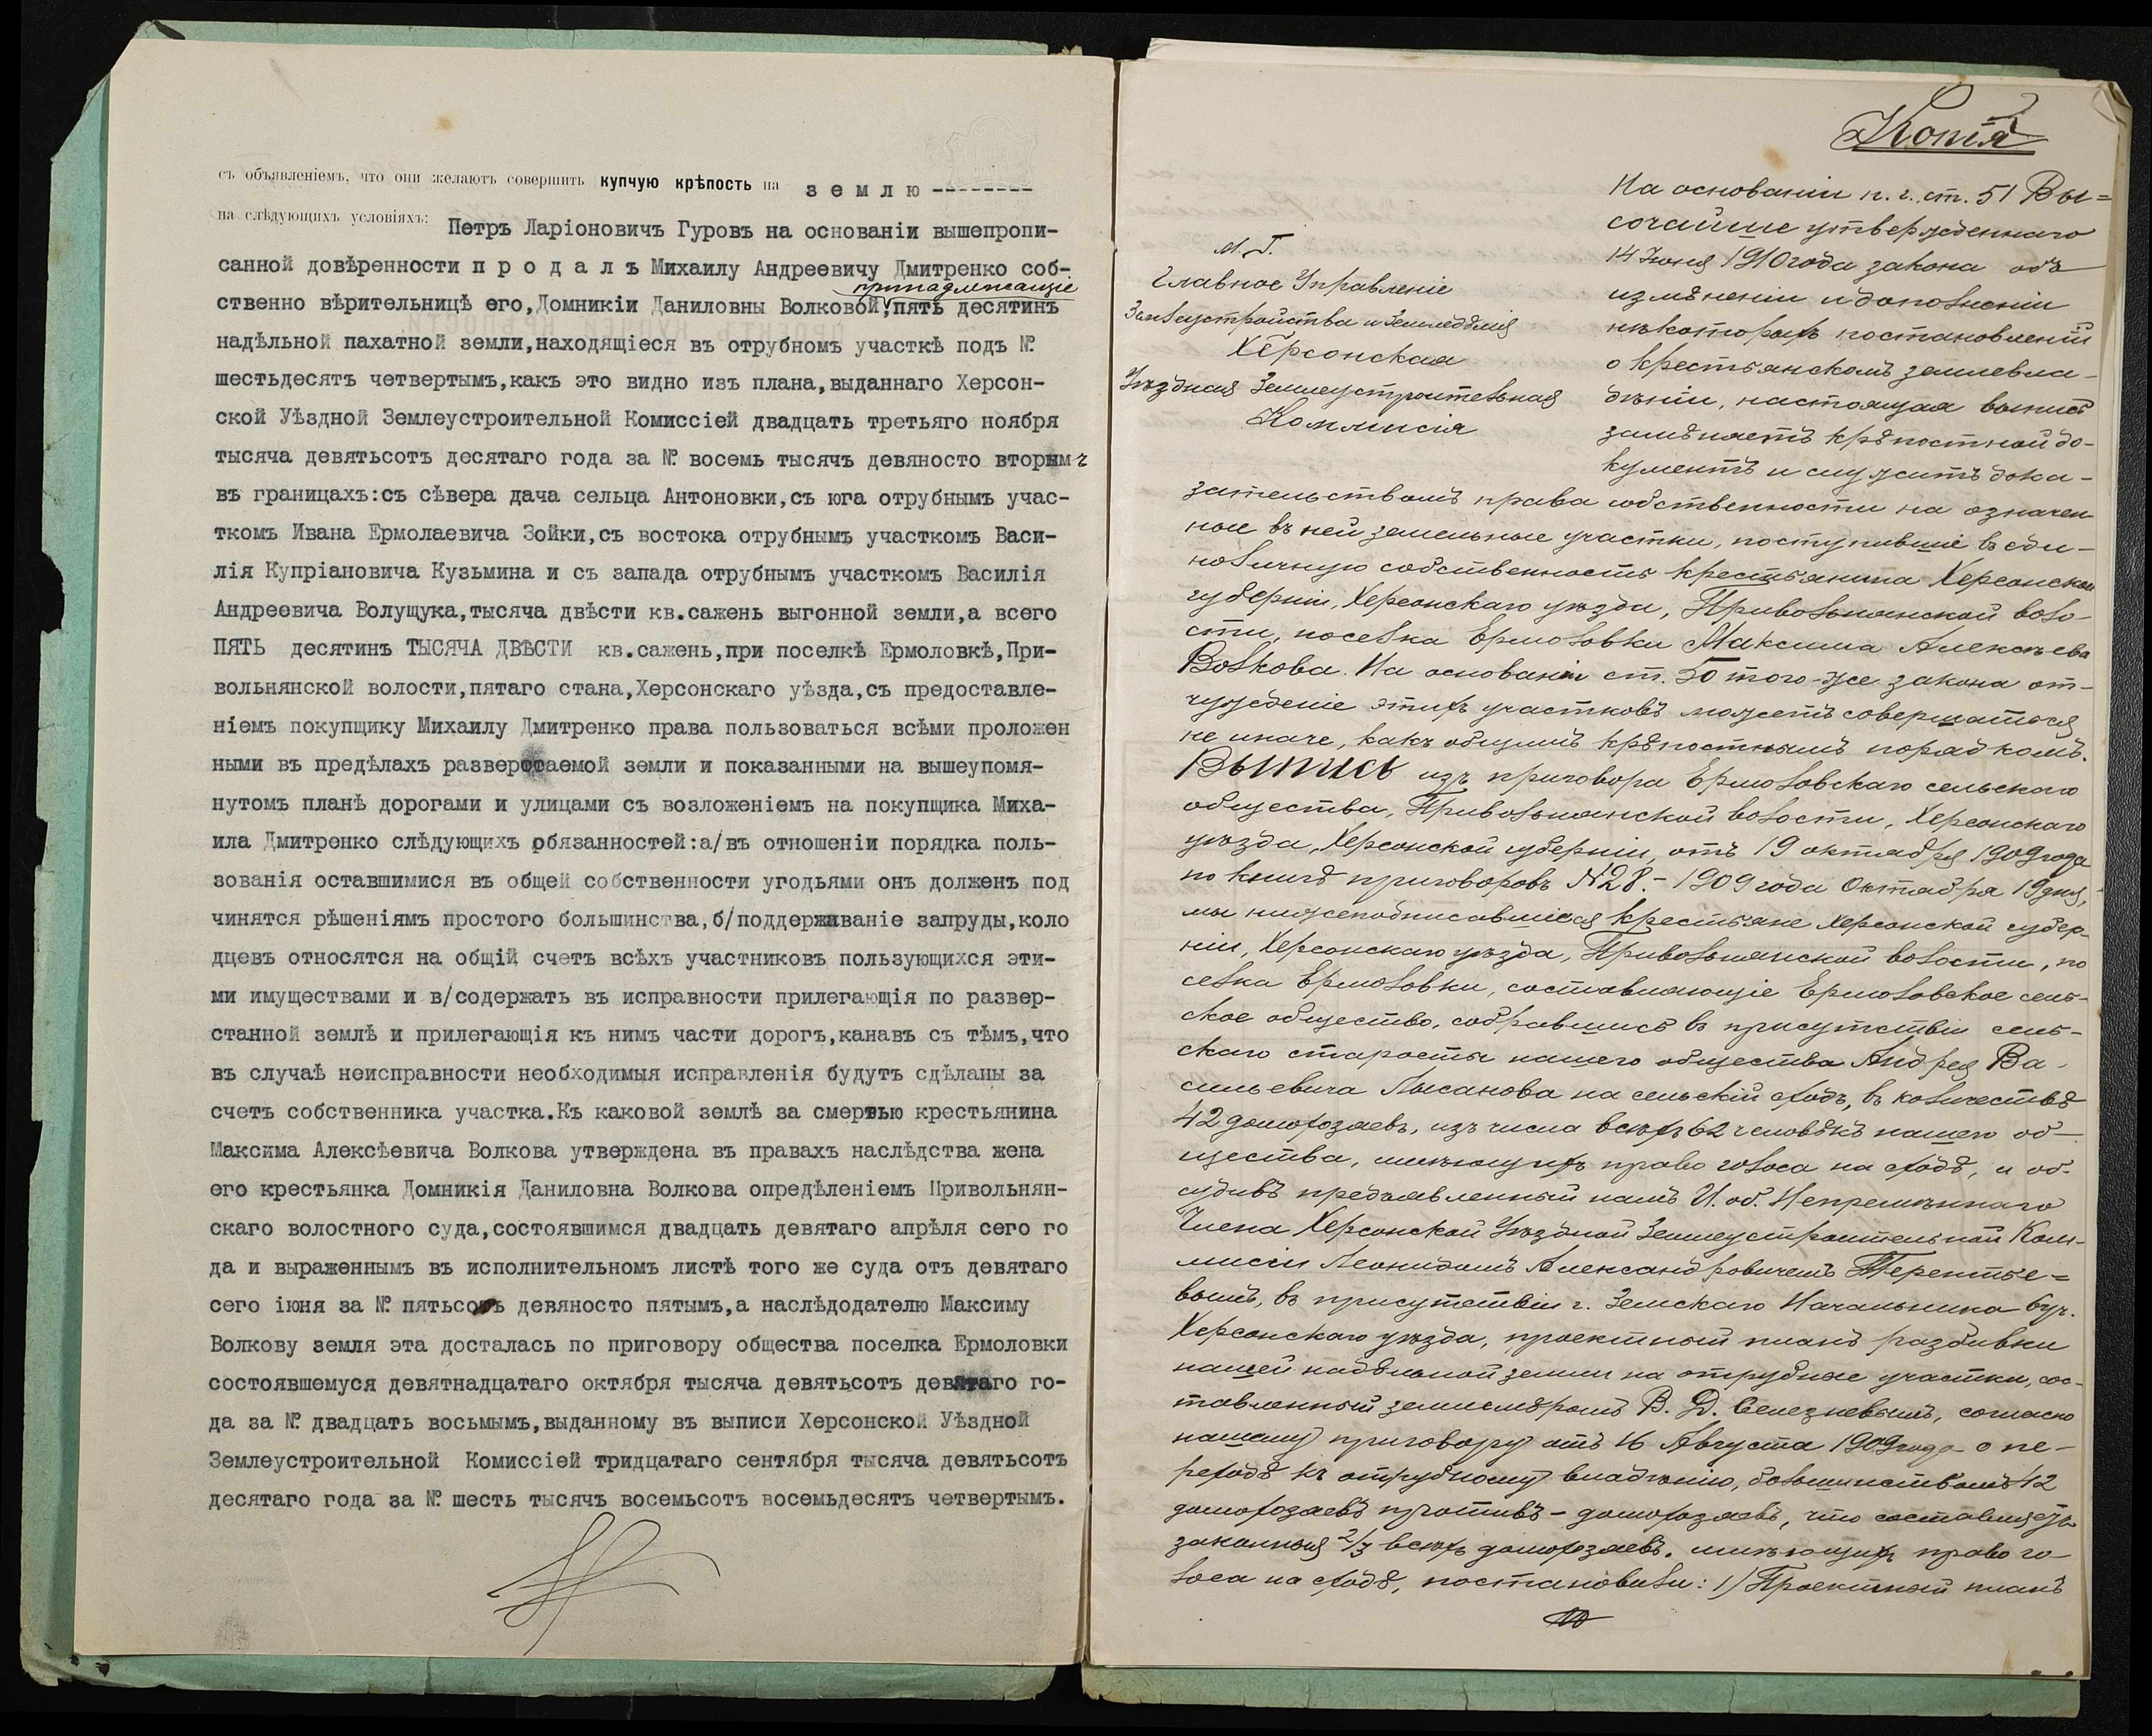 съ объявленіемъ, что они желаютъ совершить купчую крѣпость на з е м л ю --------
на слѣдующихъ условіяхъ: Петръ Ларіоновичъ Гуровъ на основаніи вышепропи-
санной довѣренности п р о д а л ъ Михаилу Андреевичу Дмитренко соб-
принадлежащіе
ственно вѣрительницѣ его,Домникіи Даниловны Волковой, пять десятинъ
надѣльной пахатной земли,находящіеся въ отрубномъ участкѣ подъ №
шестьдесятъ четвертымъ,какъ это видно изъ плана,выданнаго Херсон-
ской Уѣздной Землеустроительной Комиссіей двадцать третьяго ноября
тысяча девятьсотъ десятаго года за № восемь тысячъ девяносто вторымъ
въ границахъ:съ сѣвера дача сельца Антоновки,съ юга отрубнымъ учас-
ткомъ Ивана Ермолаевича Зойки,съ востока отрубнымъ участкомъ Васи-
лія Купріановича Кузьмина и съ запада отрубнымъ участкомъ Василія
Андреевича Волущука,тысяча двѣсти кв.сажень выгонной земли,а всего
ПЯТЬ десятинъ ТЫСЯЧА ДВѢСТИ кв.сажень,при поселкѣ Ермоловкѣ,При-
вольнянской волости,пятаго стана,Херсонскаго уѣзда,съ предоставле-
ніемъ покупщику Михаилу Дмитренко права пользоваться всѣми проложен
ными въ предѣлахъ разверстаемой земли и показанными на вышеупомя-
нутомъ планѣ дорогами и улицами съ возложеніемъ на покупщика Миха-
ила Дмитренко слѣдующихъ обязанностей:а/въ отношеніи порядка поль-
зованія оставшимися въ общей собственности угодьями онъ долженъ под
чинятся рѣшеніямъ простого большинства,б/поддерживаніе запруды,коло
дцевъ относятся на общій счетъ всѣхъ участниковъ пользующихся эти-
ми имуществами и в/содержать въ исправности прилегающія по развер-
станной землѣ и прилегающія къ нимъ части дорогъ,канавъ съ тѣмъ,что
въ случаѣ неисправности необходимыя исправленія будутъ сдѣланы за
счетъ собственника участка.Къ каковой землѣ за смертью крестьянина
Максима Алексѣевича Волкова утверждена въ правахъ наслѣдства жена
его крестьянка Домникія Даниловна Волкова опредѣленіемъ Привольнян-
скаго волостного суда,состоявшимся двадцать девятаго апрѣля сего го
да и выраженнымъ въ исполнительномъ листѣ того же суда отъ девятаго
сего іюня за № пятьсотъ девяносто пятымъ,а наслѣдодателю Максиму
Волкову земля эта досталась по приговору общества поселка Ермоловки
состоявшемуся девятнадцатаго октября тысяча девятьсотъ девятаго го-
да за № двадцать восьмымъ,выданному въ выписи Херсонской Уѣздной
Землеустроительной Комиссіей тридцатаго сентября тысяча девятьсотъ
десятаго года за № шесть тысячъ восемьсотъ восемьдесятъ четвертымъ.
Копія
М. Г.
Главное Управленіе
Землеустройства и Земледѣлія
Херсонская
Уѣздная Землеустроительная
Коммисія
На основаніи п. г. ст. 51 Вы=
сочайше утвержденнаго
14 Іюня 1910 года закона объ
измѣненіи и дополненіи
нѣкоторыхъ постановленій
о крестьянскомъ землевла-
дѣніи, настоящая выпись
замѣняетъ крѣпостной до-
кументъ и служитъ дока-
зательствомъ права собственности на означен
ные въ ней земельные участки, поступившіе въ еди-
ноличную собственность крестьянина Херсонской
губерніи, Херсонскаго уѣзда, Привольнянской воло-
сти, поселка Ермоловки Максима Алексѣева
Волкова. На основаніи ст. 50 того-же закона от-
чужденіе этихъ участковъ можетъ совершаться
не иначе, какъ общимъ крѣпостнымъ порядкомъ.
Выпись изъ приговора Ермоловскаго сельскаго
общества, Привольнянской волости, Херсонскаго
уѣзда, Херсонской губерніи, отъ 19 октября 1909 года
по книгѣ приговоровъ № 28.- 1909 года Октября 19 дня,
мы нижеподписавшіеся крестьяне Херсонской губер-
ніи, Херсонскаго уѣзда, Привольнянской волости, по
селка Ермоловки, составляющіе Ермоловское сель-
ское общество, собравшись въ присутствіи сель-
скаго старосты нашего общества Андрея Ва-
сильевича Лысанова на сельскій сходъ, въ количествѣ
42 домохозяевъ, изъ числа всѣхъ 62 человѣкъ нашего об-
щества, имѣющихъ право голоса на сходѣ, и об-
судивъ предъявленный намъ И. об. Непремѣннаго
Члена Херсонской Уѣздной Землеустроительной Ком-
мисіи Леонидомъ Александровичемъ Терентье=
вымъ, въ присутствіи г. Земскаго Начальника 6 уч.
Херсонскаго уѣзда, проектный планъ разбивки
нашей надѣльной земли на отрубные участки, сос-
тавленный землемѣромъ В. Д. Селезневымъ, согласно
нашему приговору отъ 16 Августа 1909 года о пе-
реходѣ къ отрубному владѣнію, большинствомъ 42
домохозяевъ противъ - домохозяевъ, что составляетъ
законныя 2/3 всѣхъ домохозяевъ, имѣющихъ право го-
лоса на сходѣ, постановили: 1) Проектный планъ